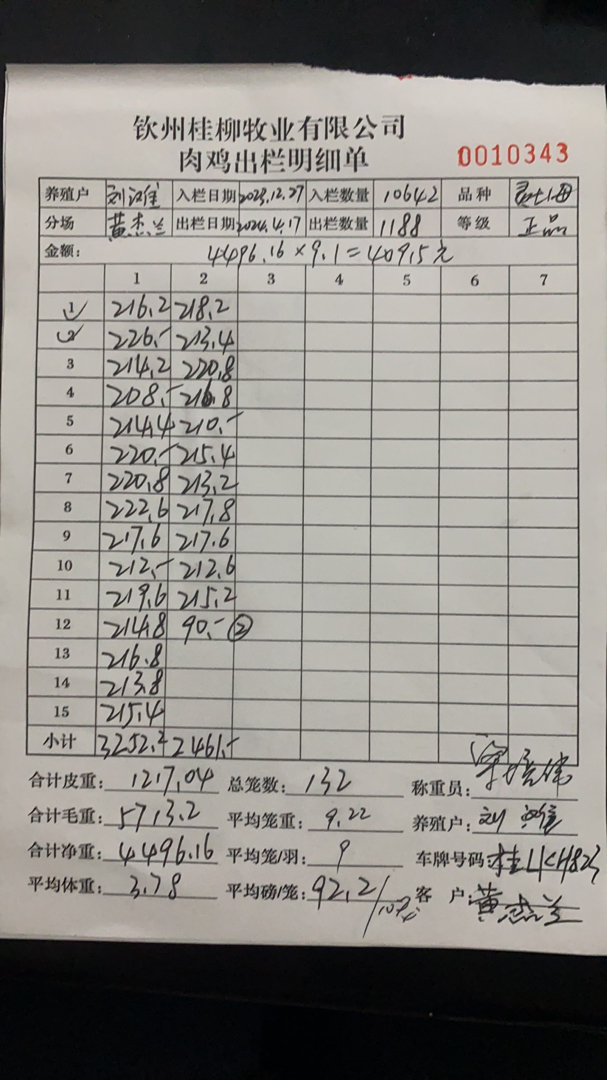 钦州桂柳牧业有限公司
肉鸡出栏明细单 0010343
养殖户 刘 入栏日期 2023.12.27 入栏数量 10642 品种
分场 黄杰兰 出栏日期 2024.4.17 出栏数量 1188 等级 正品
金额: 4496.16×9.1=40915元
1 2 3 4 5 6 7
1 216.2 218.2
2 226.- 213.4
3 214.2 220.8
4 208.- 216.8
5 214.4 210.-
6 220.- 215.4
7 220.8 213.2
8 222.6 217.8
9 217.6 217.6
10 212.- 212.6
11 219.6 215.2
12 214.8 90.- ②
13 216.8
14 213.8
15 215.4
小计 3252.2 2461.-
合计皮重: 1217.04 总笼数: 132 称重员:
合计毛重: 5713.2 平均笼重: 9.22 养殖户: 刘
合计净重: 4496.16 平均笼/羽: 9 车牌号码: 桂
平均体重: 3.78 平均磅/笼: 92.2 客户: 黄杰兰